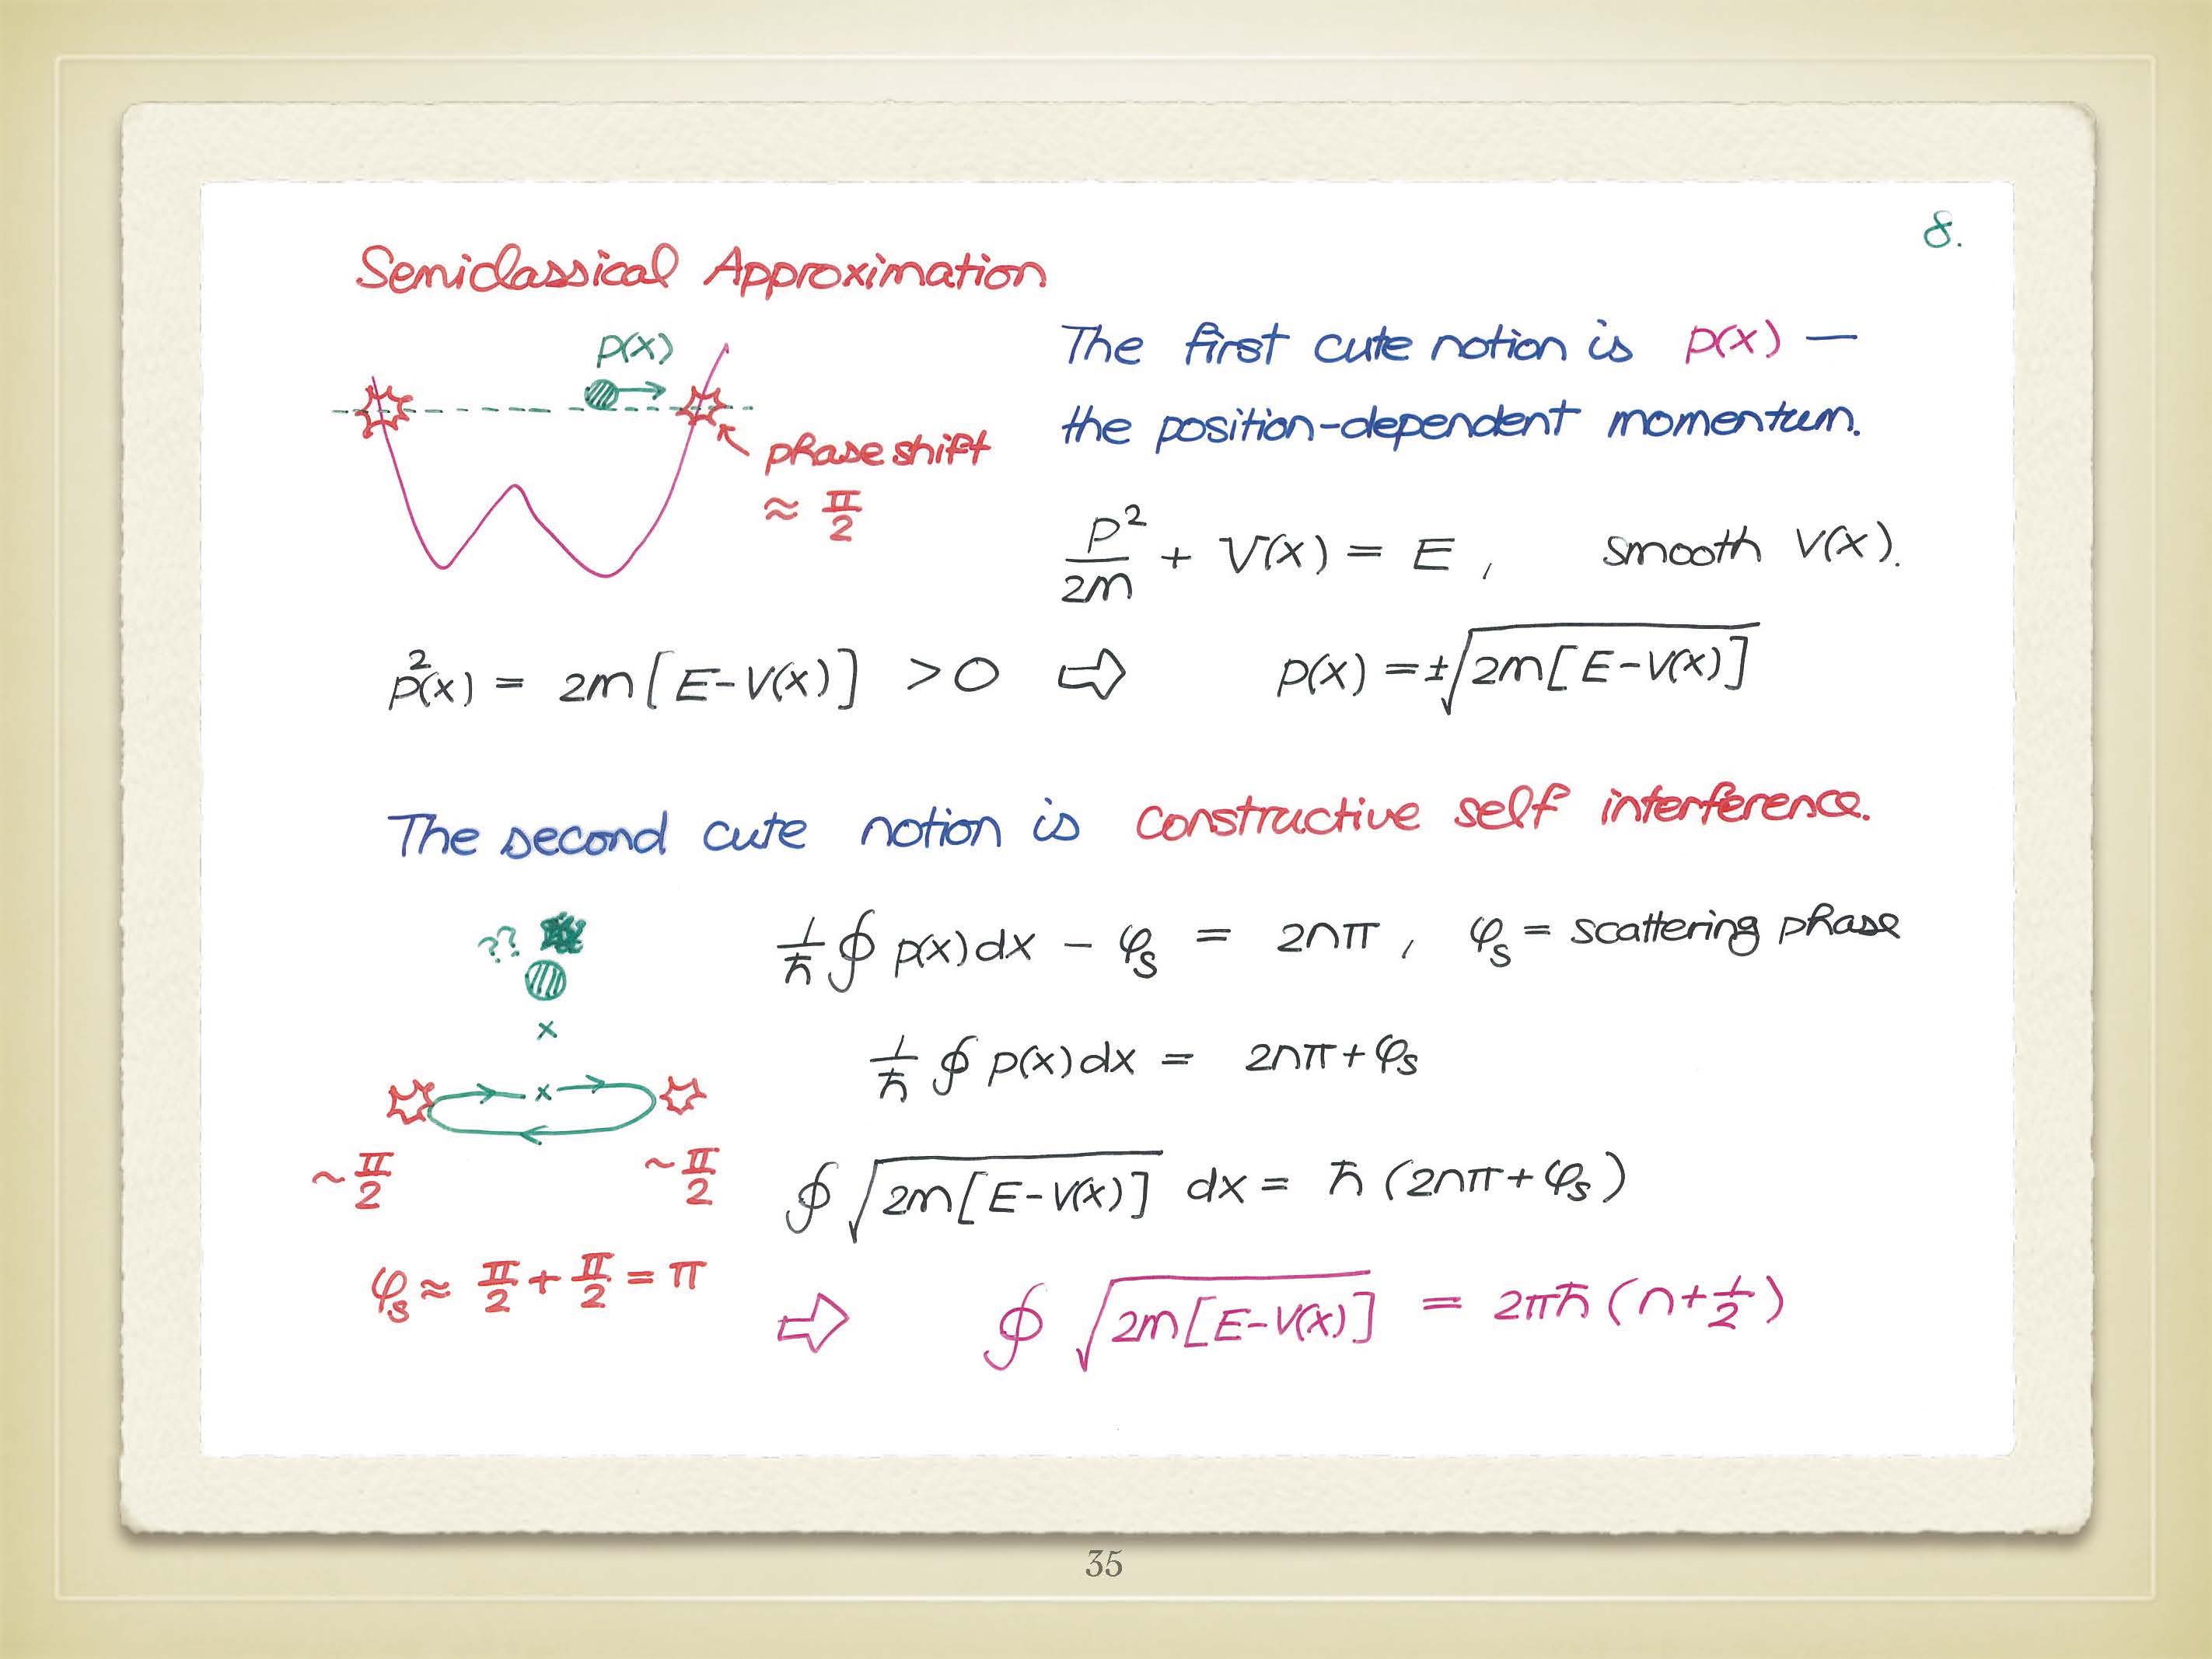 8.
Semiclassical Approximation
p(x)
phase shift
≈ π/2
The first cute notion is p(x) —
the position-dependent momentum.
p²/2m + V(x) = E , smooth V(x).
p²(x) = 2m[E-V(x)] >0 ⇨ p(x) = ±√2m[E-V(x)]
The second cute notion is constructive self interference.
??
x
x
~π/2 ~π/2
φs ≈ π/2 + π/2 = π
1/ħ ∮ p(x)dx - φs = 2nπ , φs = scattering phase
1/ħ ∮ p(x)dx = 2nπ + φs
∮ √2m[E-V(x)] dx = ħ (2nπ + φs)
⇨ ∮ √2m[E-V(x)] = 2πħ (n+1/2)
35